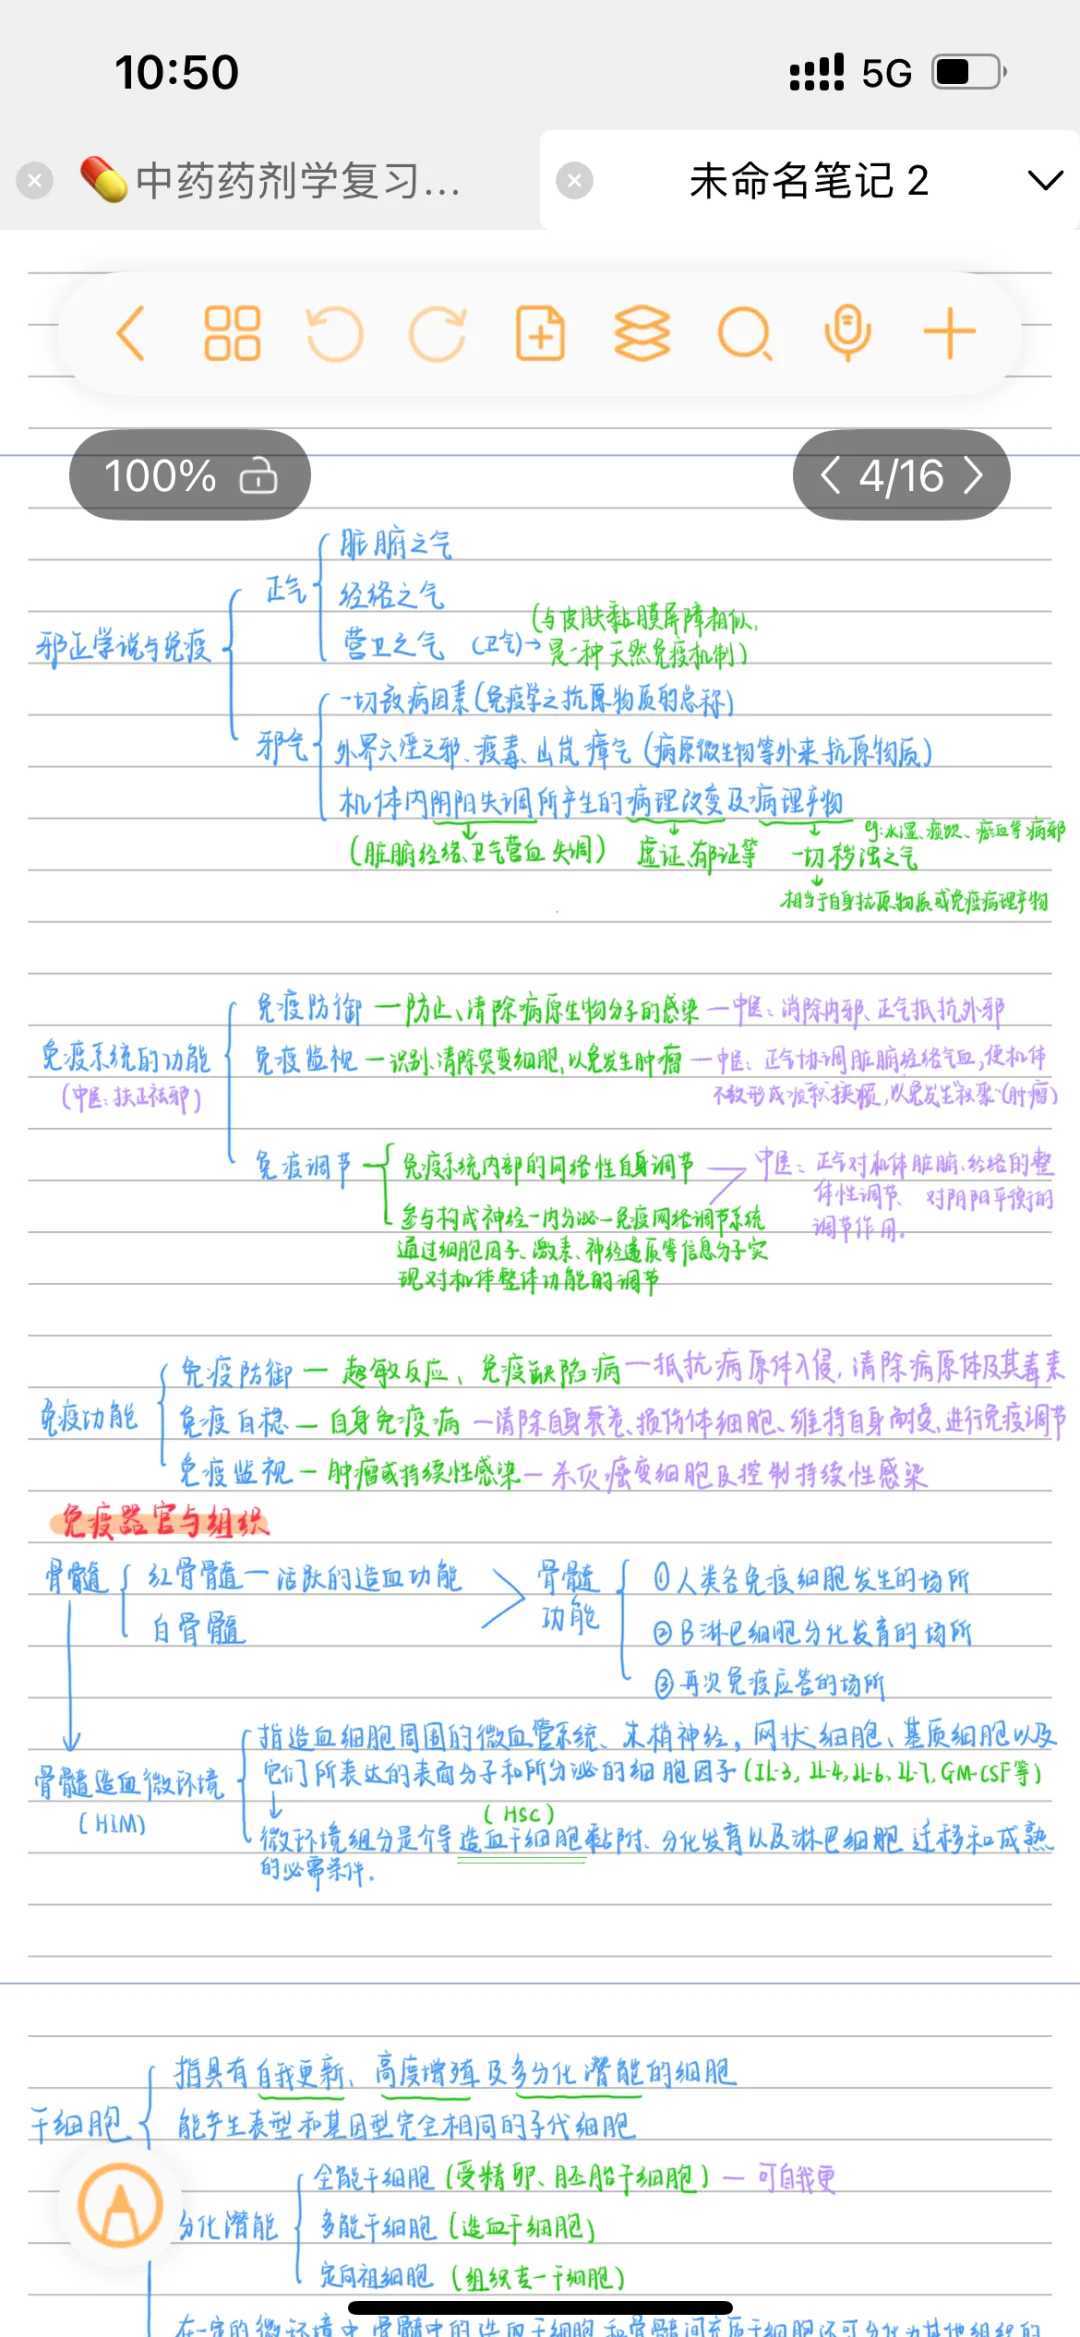 10:50
5G
中药药剂学复习...
未命名笔记 2
100%
4/16
脏腑之气
正气
经络之气
(与皮肤黏膜屏障相似,
邪正学说与免疫
营卫之气 (卫气)→
是一种天然免疫机制)
一切致病因素(免疫学之抗原物质的总称)
邪气
外界六淫之邪、疫毒、山岚瘴气(病原微生物等外来抗原物质)
机体内阴阳失调所产生的病理改变及病理产物
eg:水湿、痰饮、瘀血等病邪
(脏腑经络、卫气营血失调) 虚证、郁证等 一切秽浊之气
相当于自身抗原物质或免疫病理产物
免疫防御 — 防止、清除病原生物分子的感染 — 中医:消除内邪、正气抵抗外邪
免疫系统的功能
免疫监视 — 识别、清除突变细胞,以免发生肿瘤 — 中医:正气协调脏腑经络气血,使机体
(中医:扶正祛邪)
不致形成痰积,以免发生"积聚"(肿瘤)
免疫调节
免疫系统内部的网络性自身调节
中医:正气对机体脏腑、经络的整
体性调节、对阴阳平衡的
调节作用。
参与构成神经—内分泌—免疫网络调节系统
通过细胞因子、激素、神经递质等信息分子实
现对机体整体功能的调节
免疫防御 — 超敏反应、免疫缺陷病 — 抵抗病原体入侵,清除病原体及其毒素
免疫功能
免疫自稳 — 自身免疫病 — 清除自身衰老、损伤体细胞、维持自身耐受,进行免疫调节
免疫监视 — 肿瘤或持续性感染 — 杀灭癌变细胞及控制持续性感染
免疫器官与组织
骨髓
红骨髓 — 活跃的造血功能
白骨髓
骨髓
功能
①人类各免疫细胞发生的场所
②B淋巴细胞分化发育的场所
③再次免疫应答的场所
指造血细胞周围的微血管系统、末梢神经,网状细胞、基质细胞以及
骨髓造血微环境
它们所表达的表面分子和所分泌的细胞因子(IL-3, IL-4, IL-6, IL-7, GM-CSF等)
(HIM)
(HSC)
微环境组分是介导造血干细胞黏附、分化发育以及淋巴细胞迁移和成熟
的必需条件.
指具有自我更新、高度增殖及多分化潜能的细胞
干细胞
能产生表型和基因型完全相同的子代细胞
全能干细胞(受精卵、胚胎干细胞) — 可自我更
分化潜能
多能干细胞(造血干细胞)
定向祖细胞(组织专一干细胞)
在一定的微环境中,骨髓中的造血干细胞和骨髓间充质干细胞还可分化为其他组织的